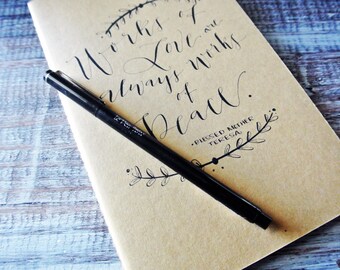 Works of
Love are
always works
of
Peace.
•BLESSED MOTHER
TERESA•